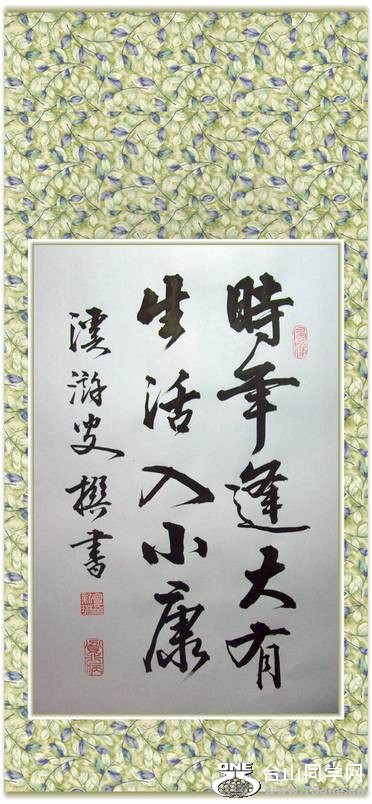 時年逢大有
生活入小康
溪游叟撰書
ONE
台山同学网